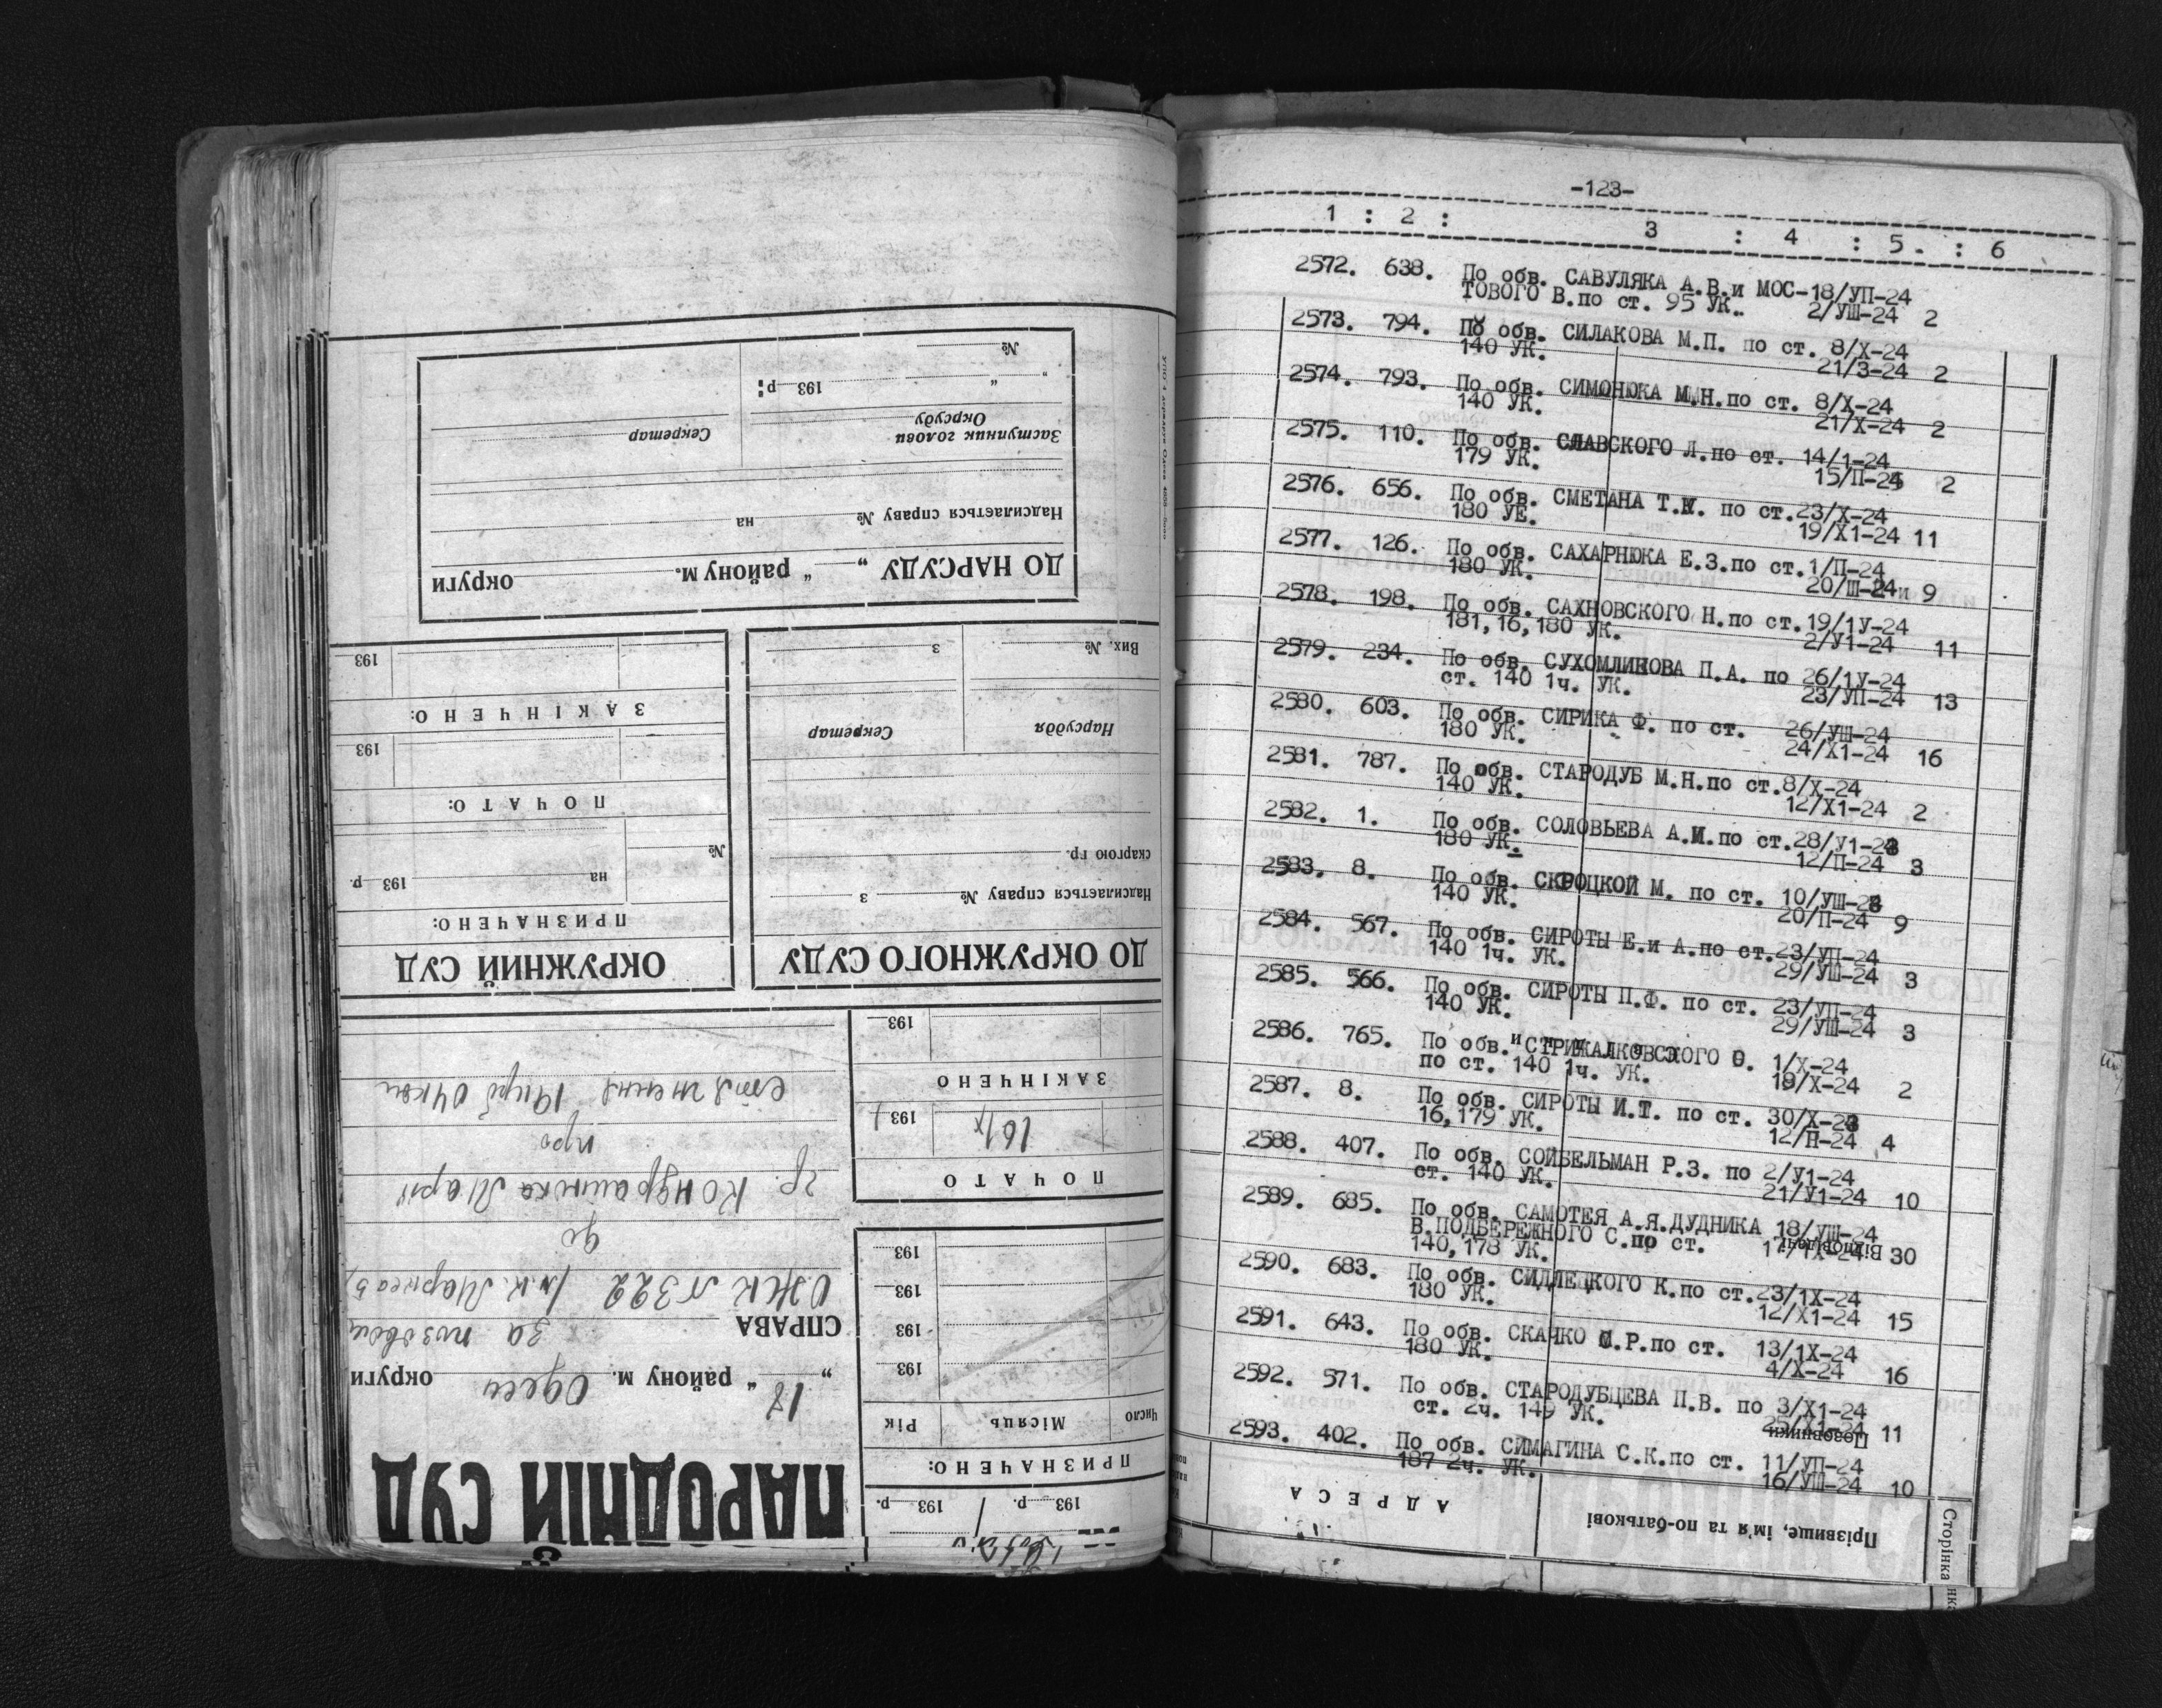 №
193 р:
Заступник голови
Окрсуду
Секретар
Надсилається справу № на
ДО НАРСУДУ „ “ району м. округи
193
ЗАКІНЧЕНО:
193
ПОЧАТО:
№
на 193 р.
ПРИЗНАЧЕНО:
ОКРУЖНИЙ СУД
Вих. № з
Нарсуддя Секретар
скаргою гр.
Надсилається справу № з
ДО ОКРУЖНОГО СУДУ
НАРОДНІЙ СУД
„18“ району м. Одеси округи
СПРАВА за позовом
ОЖК №322
до
гр. Кондрашка Марі
про
193
ЗАКІНЧЕНО
16/X 193
ПОЧАТО
193
193
193
193
Число Місяць Рік
ПРИЗНАЧЕНО:
193 р. / 193 р.
-123-
1 : 2 : 3 : 4 : 5. : 6
2572. 638. По обв. САВУЛЯКА А.В.и МОС-18/УП-24
ТОВОГО В.по ст. 95 УК.. 2/УШ-24 2
2573. 794. По обв. СИЛАКОВА М.П. по ст. 8/Х-24
140 УК. 21/3-24 2
2574. 793. По обв. СИМОНЮКА М.Н.по ст. 8/Х-24
140 УК. 21/Х-24 2
2575. 110. По обв. СЛАВСКОГО Л.по ст. 14/1-24
179 УК. 15/П-24 2
2576. 656. По обв. СМЕТАНА Т.И. по ст.23/Х-24
180 УЕ. 19/Х1-24 11
2577. 126. По обв. САХАРНЮКА Е.З.по ст.1/П-24
180 УК. 20/Ш-24 9
2578. 198. По обв. САХНОВСКОГО Н.по ст.19/1У-24
181,16,180 УК. 2/У1-24 11
2579. 234. По обв. СУХОМЛИНОВА П.А. по 26/1У-24
ст. 140 1ч. УК. 23/УП-24 13
2580. 603. По обв. СИРИКА Ф. по ст. 26/УШ-24
180 УК. 24/Х1-24 16
2581. 787. По обв. СТАРОДУБ М.Н.по ст.8/Х-24
140 УК. 12/Х1-24 2
2582. 1. По обв. СОЛОВЬЕВА А.И.по ст.28/У1-23
180 УК. 12/П-24 3
2583. 8. По обв. СКРОЦКОЙ М. по ст. 10/УШ-23
140 УК. 20/П-24 9
2584. 567. По обв. СИРОТЫ Е.и А.по ст.23/УП-24
140 1ч. УК. 29/УШ-24 3
2585. 566. По обв. СИРОТЫ П.Ф. по ст. 23/УП-24
140 УК. 29/УШ-24 3
2586. 765. По обв. СТРИЖАЛКОВСКОГО О. 1/Х-24
по ст. 140 1ч. УК. 19/Х-24 2
2587. 8. По обв. СИРОТЫ И.Т. по ст. 30/Х-23
16,179 УК. 12/П-24 4
2588. 407. По обв. СОЙБЕЛЬМАН Р.З. по 2/У1-24
ст. 140 УК. 21/У1-24 10
2589. 685. По обв. САМОТЕЯ А.Я.ДУДНИКА 18/УШ-24
В.ПОДБЕРЕЖНОГО С.по ст. 17/1Х-24 30
140,178 УК.
2590. 683. По обв. СИДЛЕЦКОГО К.по ст.23/1Х-24
180 УК. 12/Х1-24 15
2591. 643. По обв. СКАЧКО С.Р.по ст. 13/1Х-24
180 УК. 4/Х-24 16
2592. 571. По обв. СТАРОДУБЦЕВА П.В. по 3/Х1-24
ст. 2ч. 149 УК. 25/Х1-24 11
2593. 402. По обв. СИМАГИНА С.К.по ст. 11/УП-24
187 2ч. УК. 16/УШ-24 10
Відповідачі
Позовники
АДРЕСА
Прізвище, ім'я та по-батькові
Сторінка